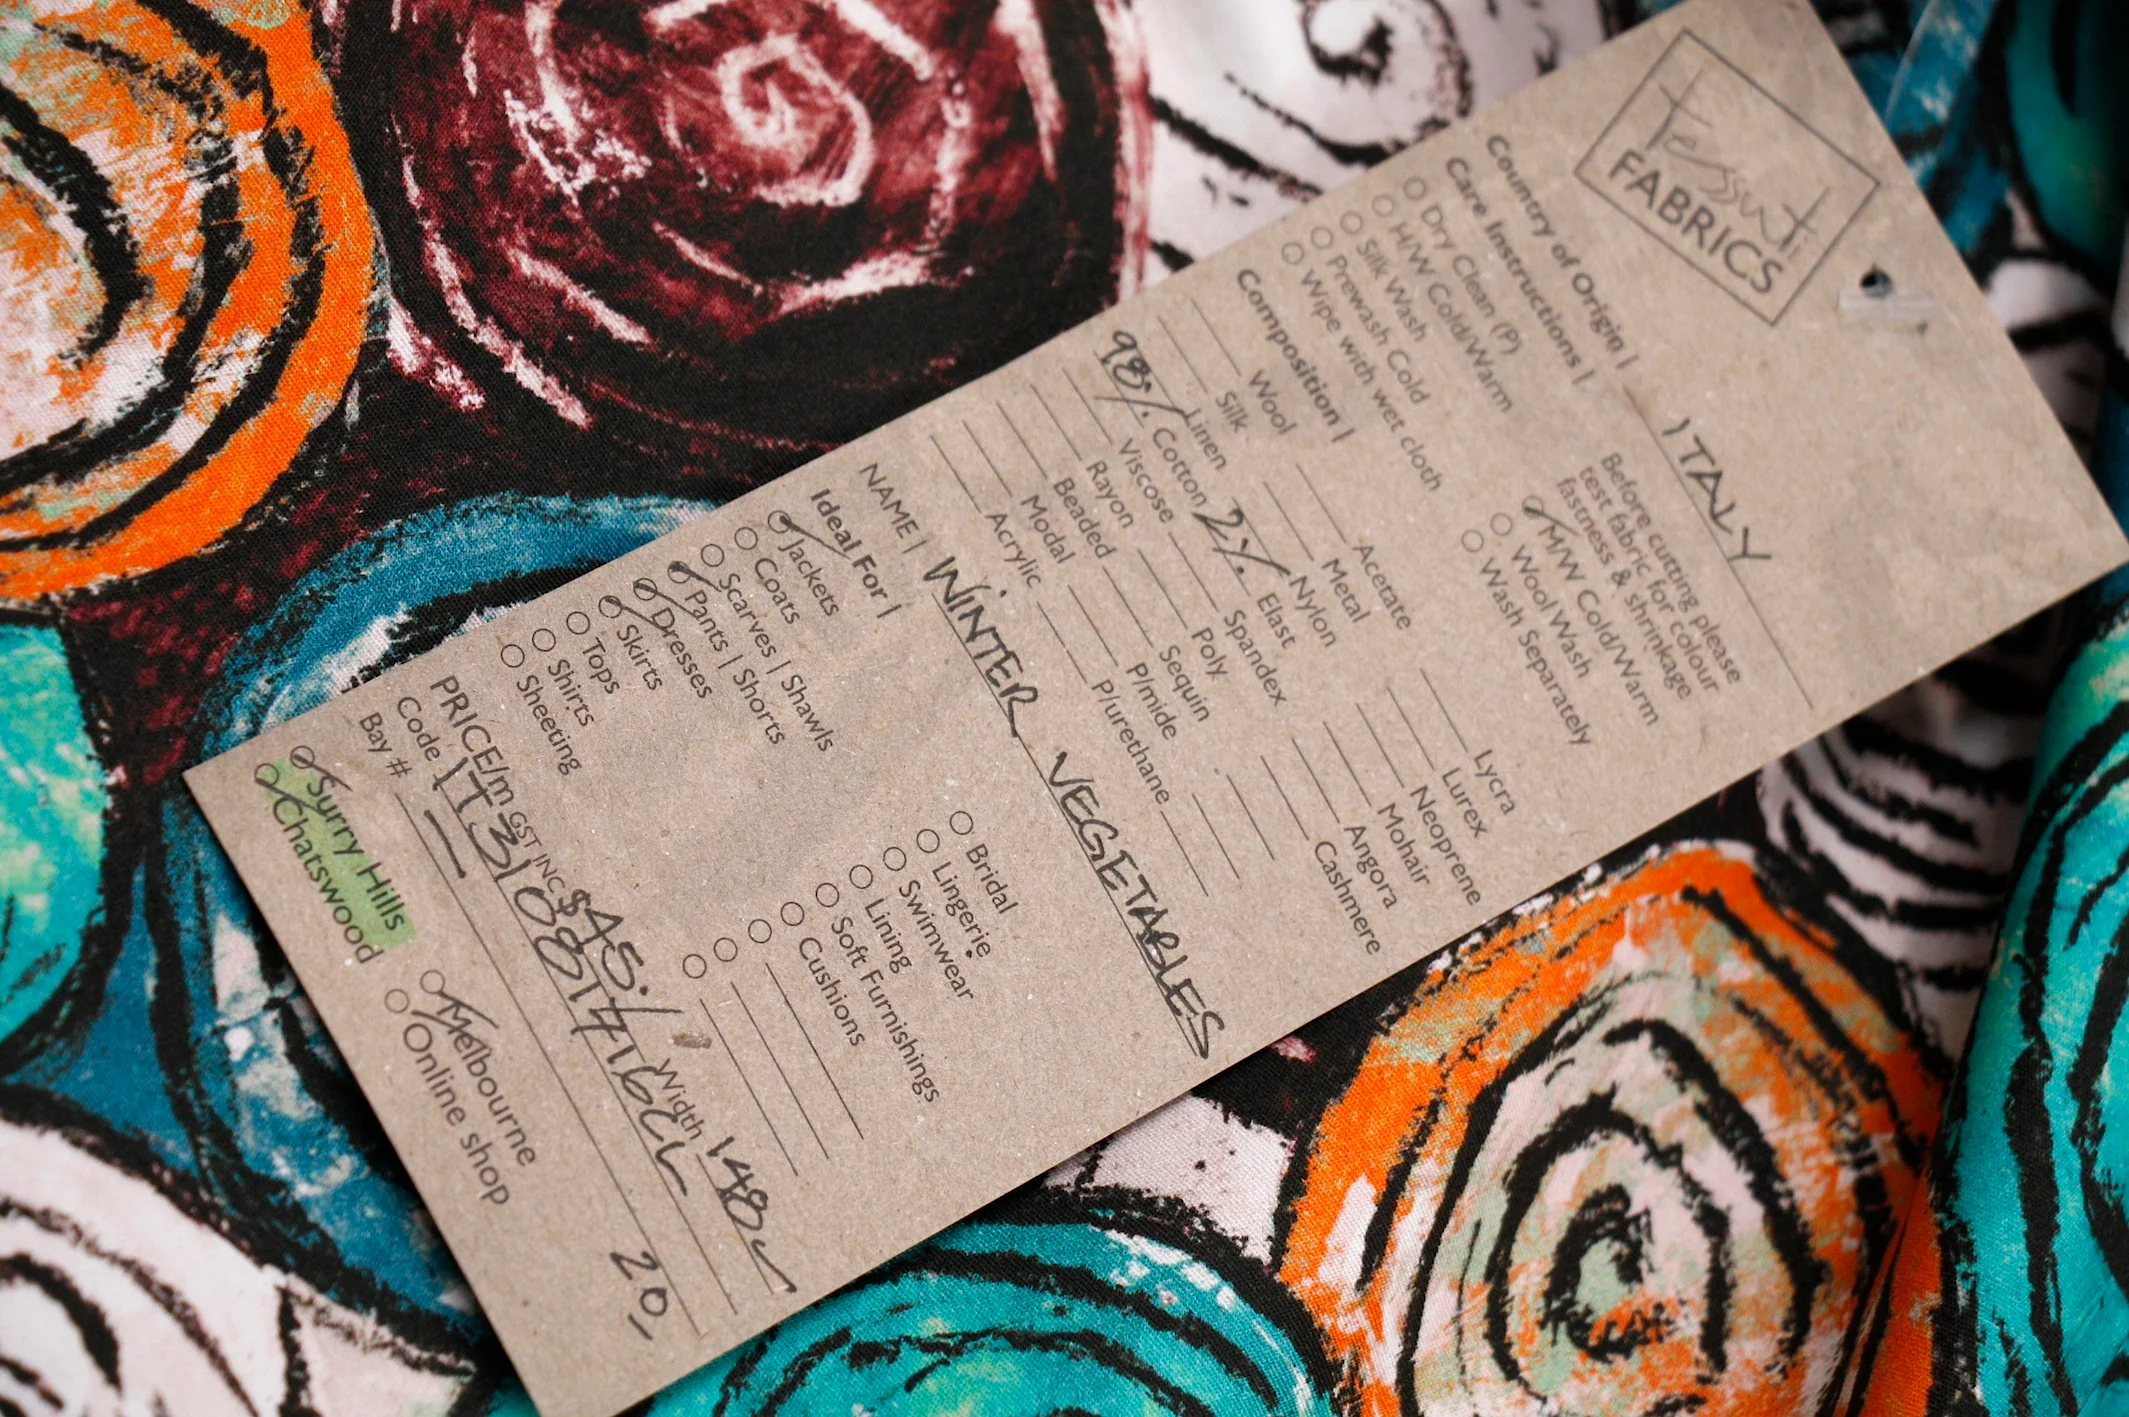 Tessuti
FABRICS
Country of Origin | ITALY
Care Instructions |
Before cutting please
test fabric for colour
fastness & shrinkage
Dry Clean (P)
H/W Cold/Warm
Silk Wash
Prewash Cold
Wipe with wet cloth
M/W Cold/Warm
Wool Wash
Wash Separately
Composition |
Wool Acetate Lycra
Silk Metal Lurex
Linen Nylon Neoprene
98% Cotton 2% Elast Mohair
Viscose Spandex Angora
Rayon Poly Cashmere
Beaded Sequin
Modal P/mide
Acrylic P/urethane
NAME | WINTER VEGETABLES
Ideal For |
Jackets Bridal
Coats Lingerie
Scarves | Shawls Swimwear
Pants | Shorts Lining
Dresses Soft Furnishings
Skirts Cushions
Tops
Shirts
Sheeting
PRICE/m GST INC $45./ Width 148c
Code
Bay # 20
Surry Hills Melbourne
Chatswood Online shop